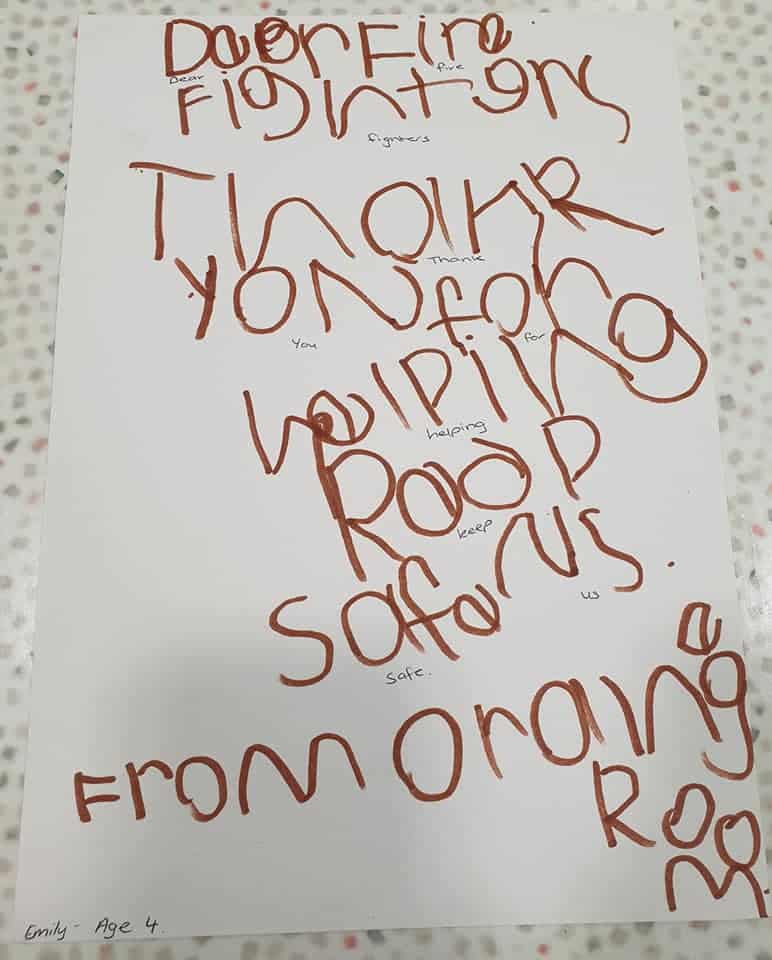 Dear Fire
Dear fire
Fighters
fighters
Thank
Thank
you for
You for
helping
helping
Keep
keep
us.
us
Safe
Safe.
From Orange
Room
Emily - Age 4.